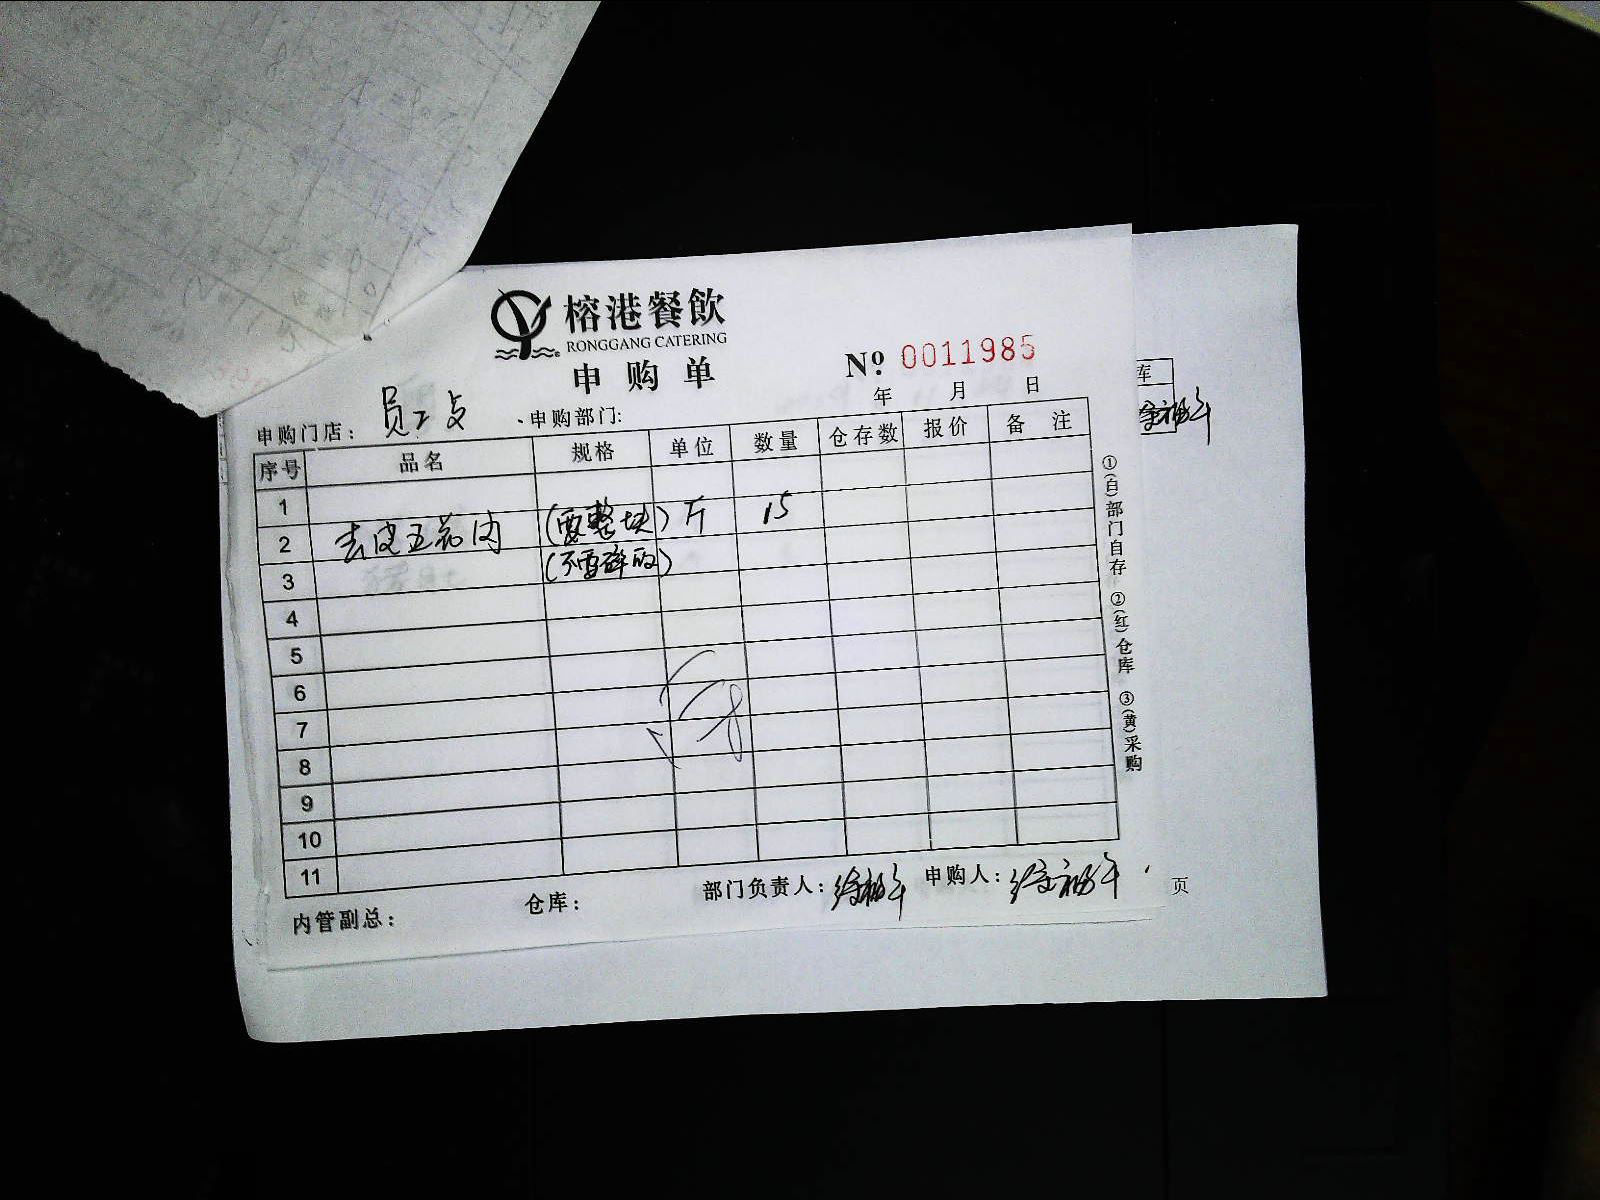 榕港餐飲
RONGGANG CATERING
申购单
№ 0011985
年 月 日
申购门店: 员工 申购部门:
序号 品名 规格 单位 数量 仓存数 报价 备注
1
2 去皮五花肉 (要整块) 斤 15
3 (不要碎的)
4
5
6
7
8
9
10
11
内管副总: 仓库: 部门负责人: 申购人:
①(白)部门自存 ②(红)仓库 ③(黄)采购
库
页